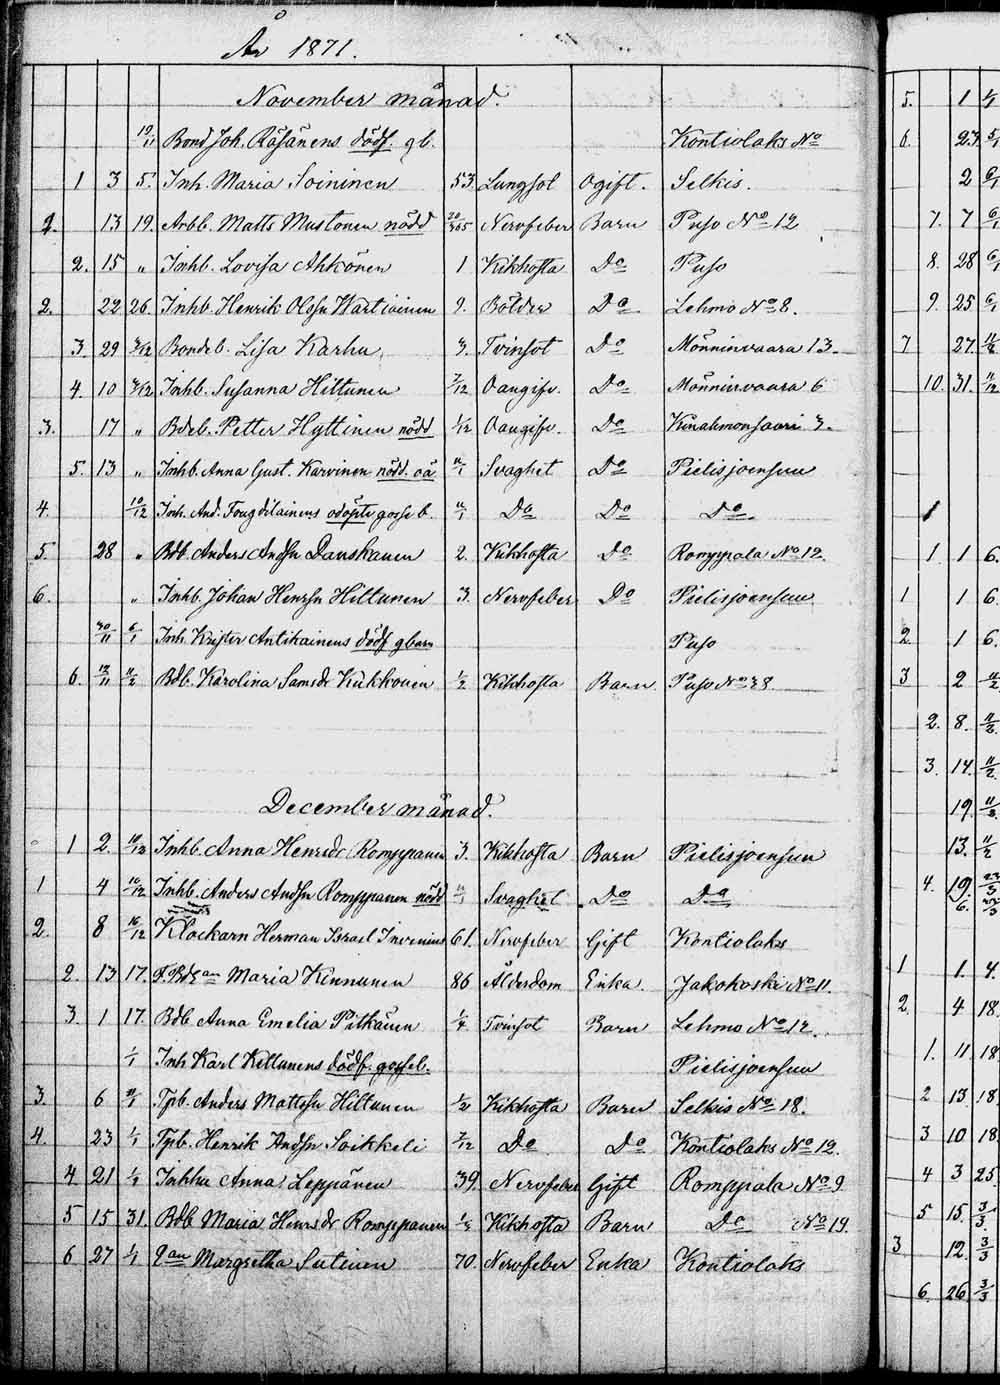 År 1871.
November månad.
19/11 Bond Joh. Räsänens dödf. gb. Kontiolaks No
1 3 5. Inh. Maria Soininen 53. Lungsot Ogift. Selkis.
1. 13 19. Arbb. Matts Mustonen nödd 20/365 Nervfeber Barn Puso No 12
2. 15 " Inhb. Lovisa Ahkönen 1 Kikhosta Do Puso
2. 22 26. Inhb. Henrik Olofsn Wartiainen 9. Bölder Do Lehmo No 8.
3. 29 3/12 Bondeb. Lisa Karhu 3. Tvinsot Do Mönninvaara 13.
4. 10 3/12 Inhb. Susanna Hiltunen 7/12 Oangifv. Do Mönninvaara 6
3. 17 " Bdeb. Petter Hyttinen nödd 1/12 Oangifv. Do Kinahmonsaari 3.
5. 13 " Inhb. Anna Gust. Karvinen nödd. oä Svaghet Do Pielisjoensuu
4. 10/12 Inh. And. odöpte gosse b. Do Do Do
5. 28 " Bdb. Anders Andsn Danskanen 2. Kikhosta Do Romppala No 12.
6. " Inhb. Johan Henrsn Hiltunen 3. Nervfeber Do Pielisjoensuu
30/11 6/1 Inh. Krister Antikainens dödf gbarn Puso
6. 12/11 11/2 Bdb. Karolina Samsdr Kukkonen 1/2 Kikhosta Barn Puso No 38
December månad.
1 2. 10/12 Inhb. Anna Henrsdr Romppanen 3. Kikhosta Barn Pielisjoensuu
1 4 10/12 Inhb. Anders Andsn Romppanen nödd Svaghet Do Do
2. 8 16/12 Klockarn Herman Israel Invenius 61. Nervfeber Gift Kontiolaks
2. 13 17. F. BdEan Maria Kinnunen 86 Ålderdom Enka. Jakokoski No 11.
3. 1 17. Bdb Anna Emelia Pitkänen 1/4 Tvinsot Barn Lehmo No 12.
1/1 Inh Karl Kettunens dödf. gosseb. Pielisjoensuu
3. 6 Tpb. Anders Mattsn Hiltunen 1/2 Kikhosta Barn Selkis No 18.
4. 23 1/1 Tpb. Henrik Andsn Soikkeli 7/12 Do Do Kontiolaks No 12.
4 21 1/1 Inhhu Anna Leppänen 39. Nervfeber Gift Romppala No 9
5 15 31. Bdb Maria Henrsdr Romppanen Kikhosta Barn Do No 19.
6 27 1/1 Margretha Sutinen 70. Nervfeber Enka Kontiolaks
5. 1
6. 23 5/1
2 6/1
7. 7 6/1
8. 28 6/1
9. 25 6/1
7 27.
10. 31.
1. 1 6.
1 1 6.
2. 1 6.
3 2 11/2
2. 8. 11/2
3. 14. 11/2
19.
13. 11/2
4. 19.
6.
1 1. 4.
2. 4 18.
1. 11 18
2 13 18
3 10 18
4 3 25
5 15. 3/3
3 12. 3/3
6. 26 3/3